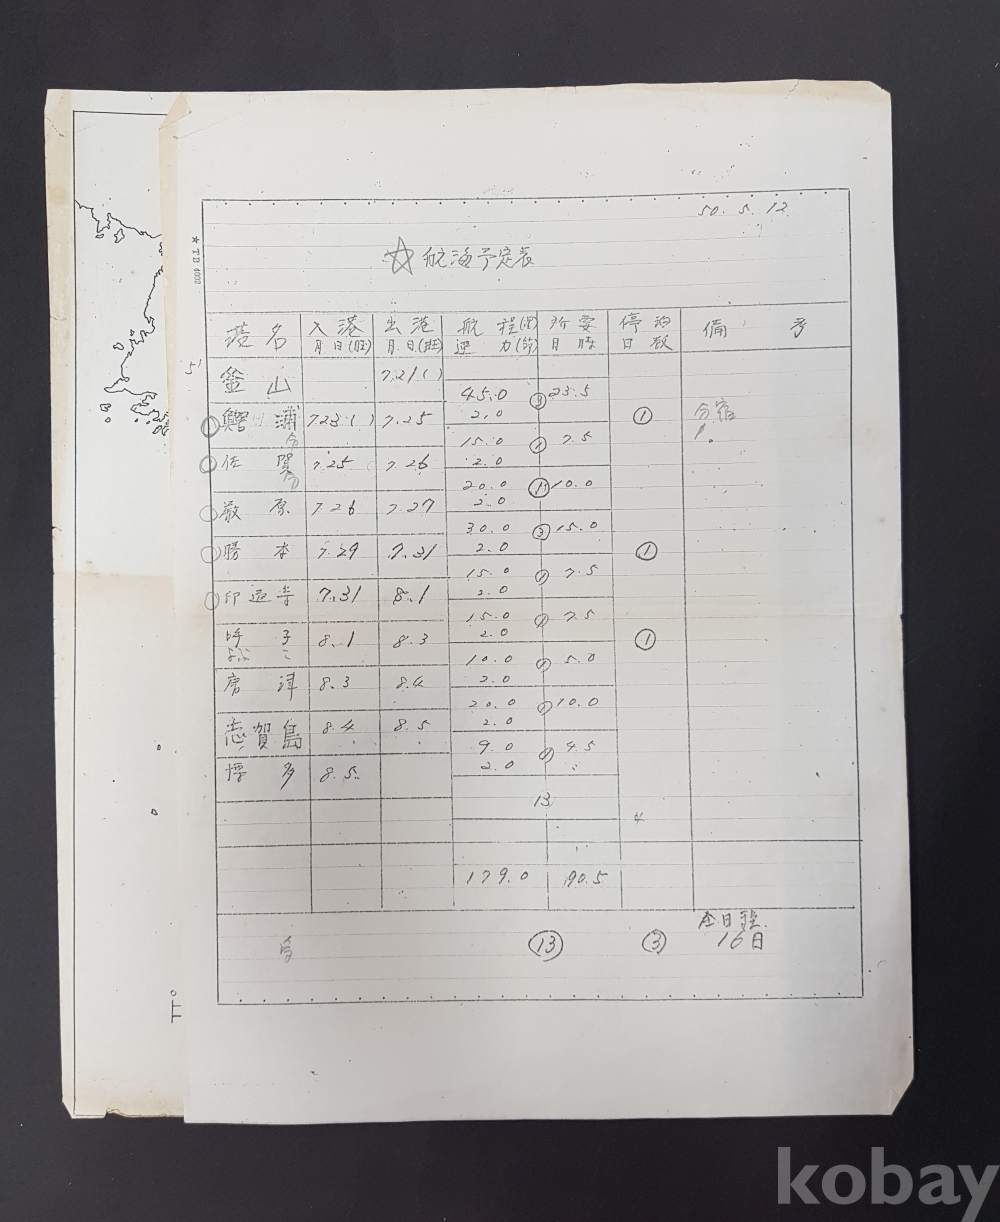 50. 5. 12
☆ 航海予定表
★ TB 4002
港名 入港 出港 航程(浬) 所要 停泊 備考
月日(時) 月日(時) 速力(節) 日時 日数
釜山 7.21( )
45.0 ③ 23.5
鰐浦 7.23( ) 7.25 2.0 ① 分宿
15.0 7.5
佐賀 7.25 7.26 2.0
20.0 10.0
厳原 7.26 7.27 2.0
30.0 ③ 15.0
勝本 7.29 7.31 2.0 ①
15.0 7.5
印通寺 7.31 8.1 2.0
15.0 7.5
呼子 8.1 8.3 2.0 ①
10.0 5.0
唐津 8.3 8.4 2.0
20.0 10.0
志賀島 8.4 8.5 2.0
9.0 4.5
博多 8.5 2.0
13
4
179.0 90.5
⑬ ③ 全日程
16日
kobay